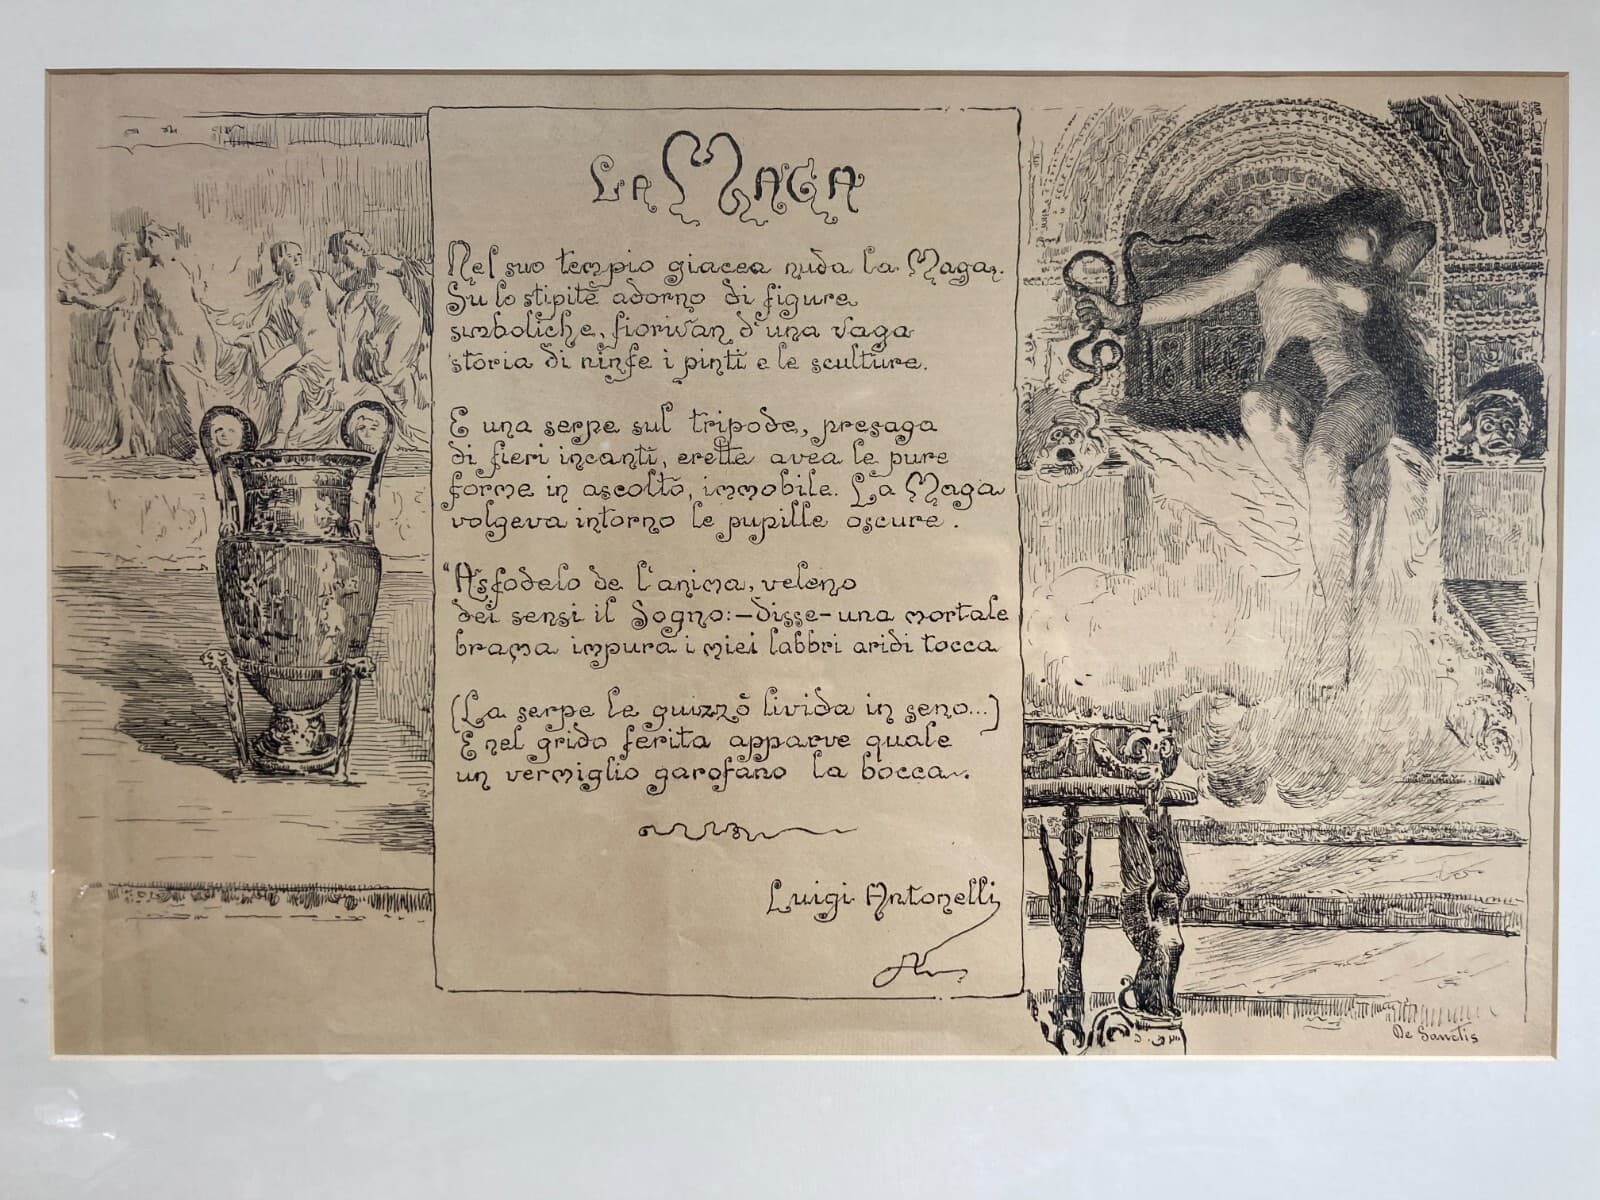 La Maga
Nel suo tempio giacea nuda la Maga.
Su lo stipite adorno di figure
simboliche, fiorivan d'una vaga
storia di ninfe i pinti e le sculture.
E una serpe sul tripode, presaga
di fieri incanti, erette avea le pure
forme in ascolto, immobile. La Maga
volgeva intorno le pupille oscure.
"Asfodelo de l'anima, veleno
dei sensi il Sogno:—disse—una mortale
brama impura i miei labbri aridi tocca
(La serpe le guizzò livida in seno...)
E nel grido ferita apparve quale
un vermiglio garofano la bocca.
Luigi Antonelli
De Sanctis